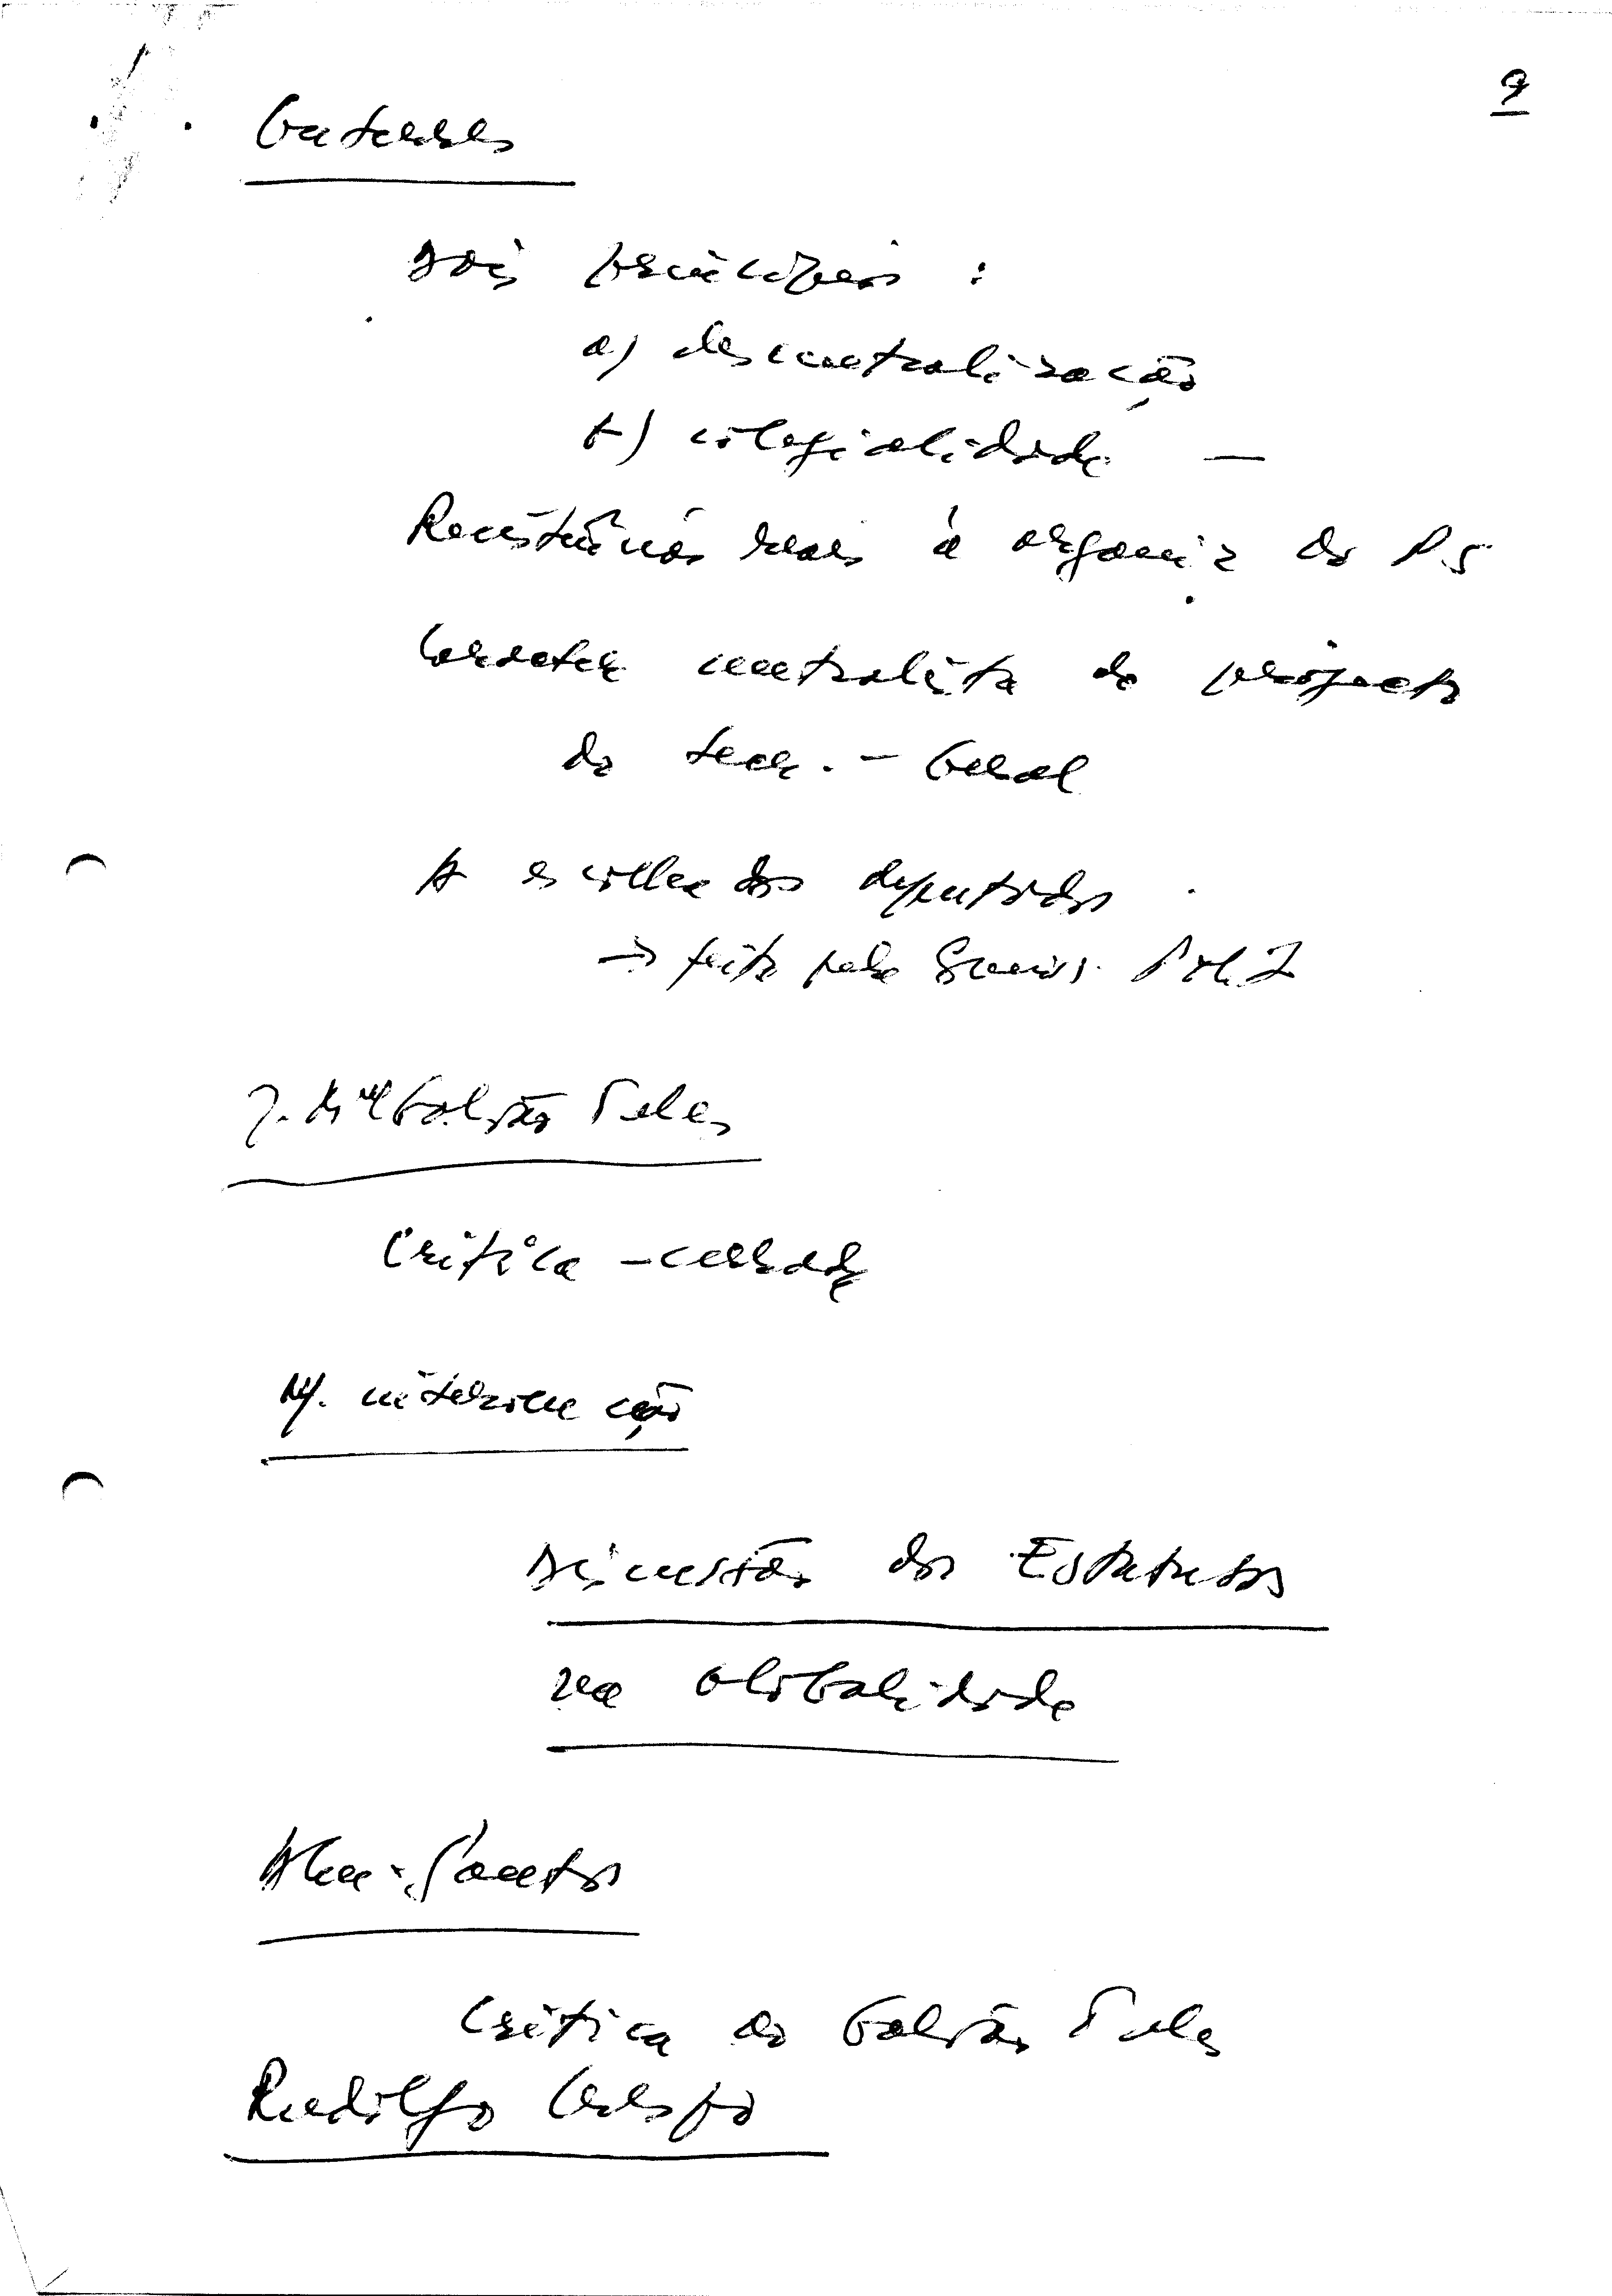 9
Guterres
Dois princípios :
a) descentralização
b) colegialidade —
Restrições reais à organiz do P.S.
Carácter centralista do projecto
do Secr. - Geral
A escolha dos deputados
→ feita pela Comiss. Pol.
J. Mel Galvão Teles
Crítica - cerrada
M. interrogação
Discussão dos Estatutos
na Globalidade
Alm. Santos
Crítica ao Galvão Teles
Rudolfo Crespo